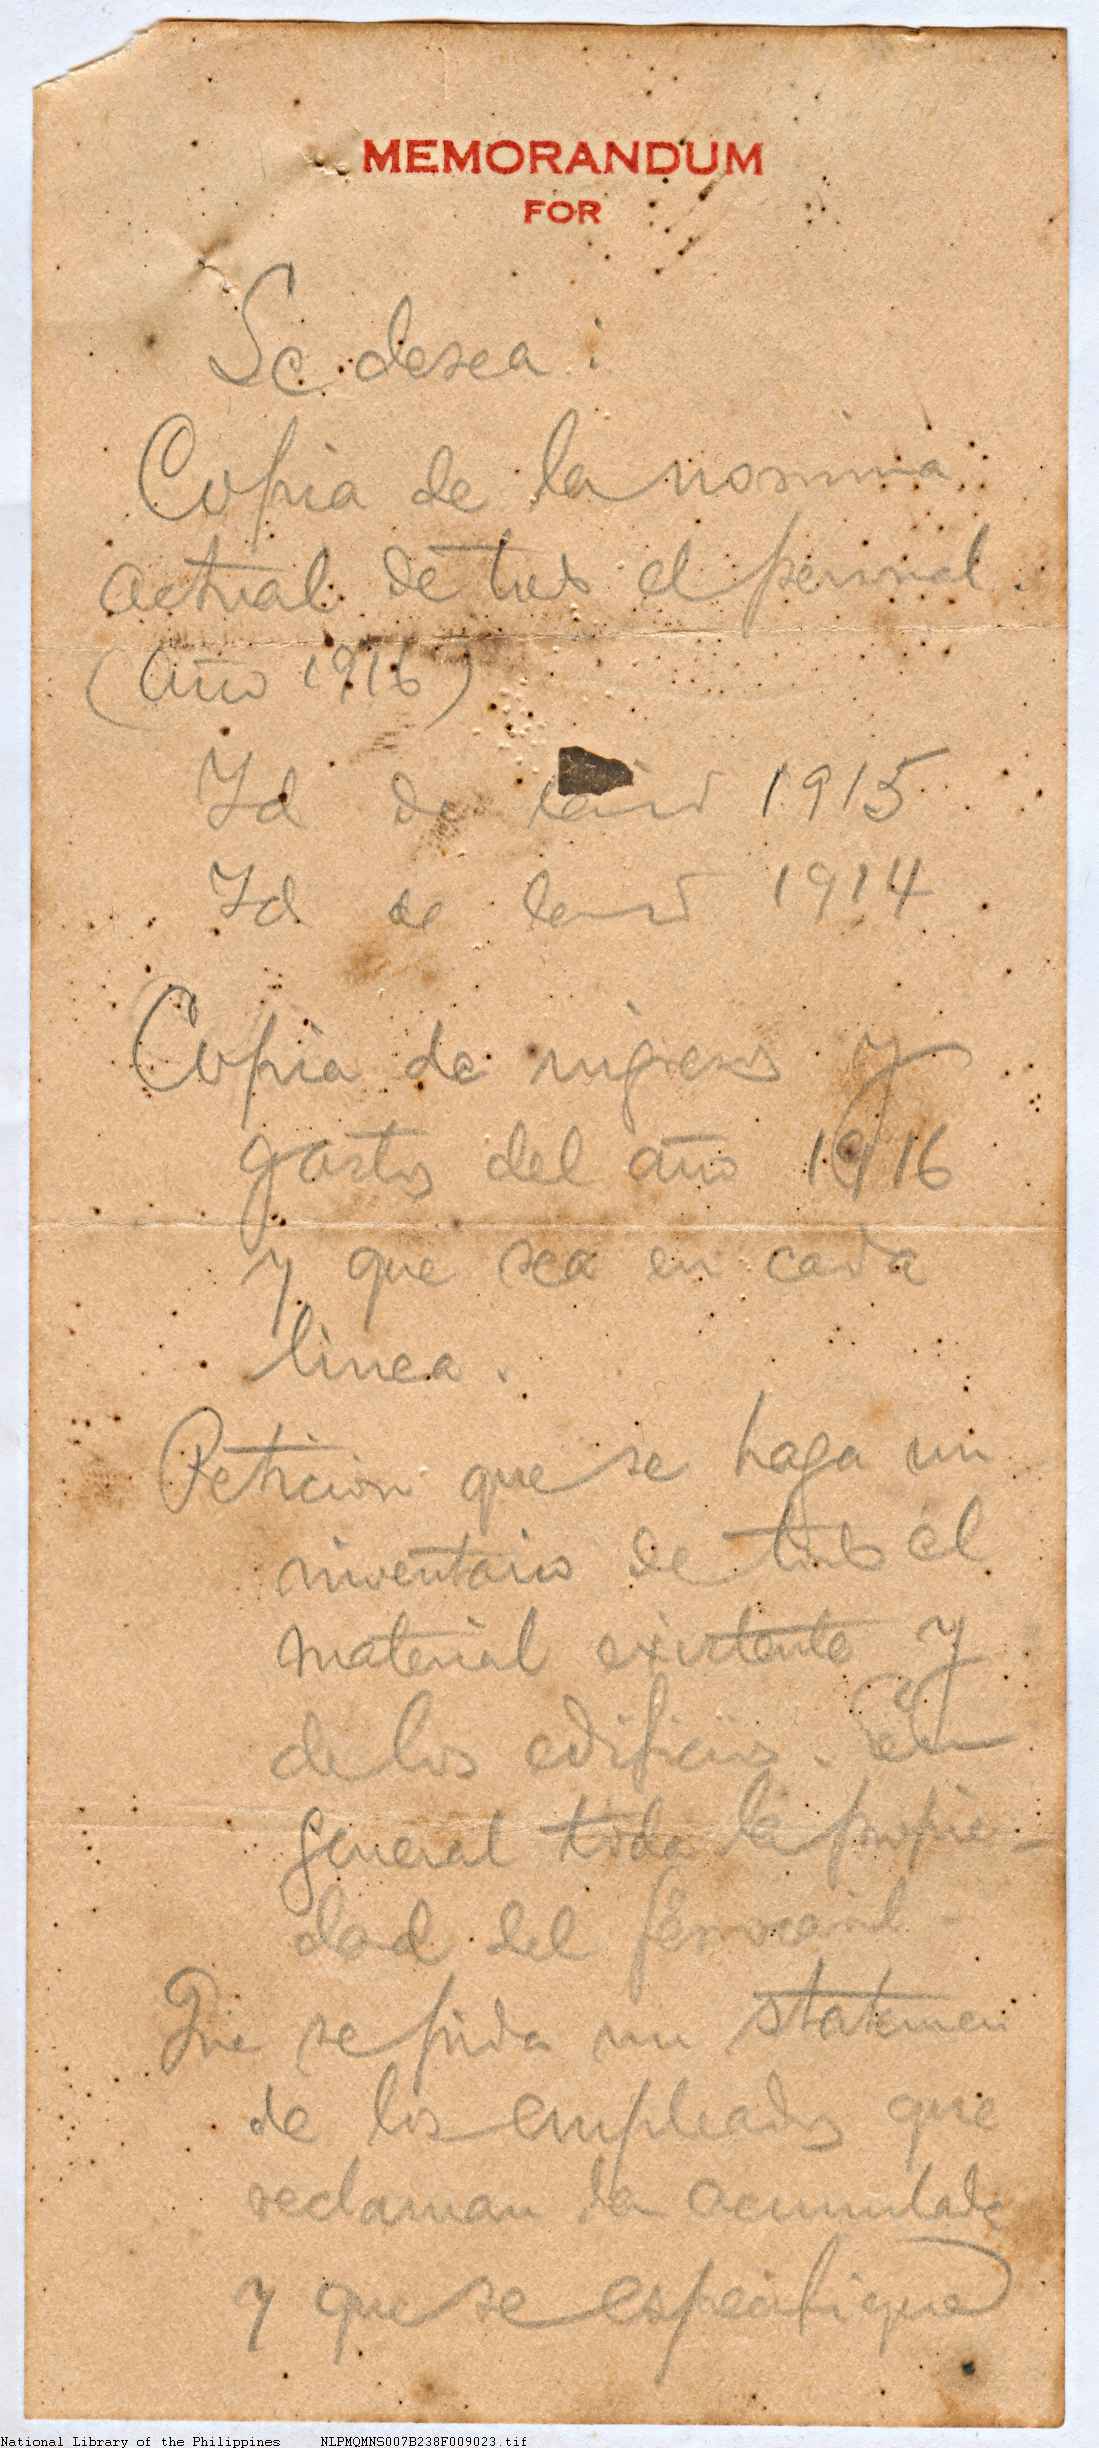 MEMORANDUM
FOR
Se desea:
Copia de la nomina
actual de todo el personal.
(Año 1916)
Id de 1915
Id de 1914
Copia de ingresos y
gastos del año 1916
y que sea en cada
linea.
Peticion que se haga un
inventario de todo el
material existente y
de los edificios. En
general toda la propie-
dad del ferrocarril -
Que se pida un statemen
de los empleados que
reclaman la acumulada
y que se especifique
National Library of the Philippines NLPMQMNS007B238F009023.tif